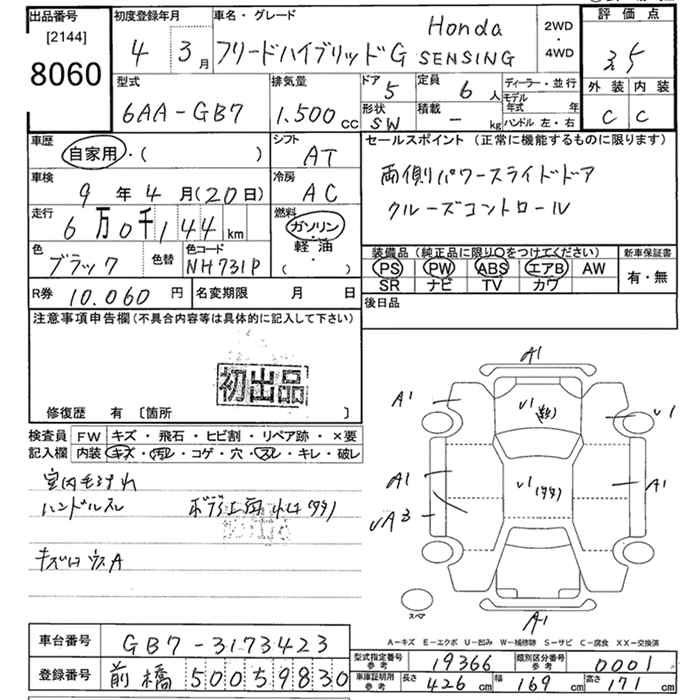 出品番号
[2144]
8060
初度登録年月
4 3月
車名・グレード
フリードハイブリッドG Honda SENSING
2WD・4WD
評価点
3.5
外装 内装
C C
型式
6AA-GB7
排気量
1.500cc
ドア 5
形状 SW
定員 6人
積載 - kg
ディーラー・並行
モデル年式 年
ハンドル 左・右
車歴 自家用・( )
シフト AT
車検 9年4月(20日)
冷房 AC
走行 6万0千144km
燃料 ガソリン・軽油・( )
色 ブラック 色替
色コード NH731P
R券 10.060円
名変期限 月 日
セールスポイント(正常に機能するものに限ります)
両側パワースライドドア
クルーズコントロール
装備品(純正品に限り○をつけてください)
PS PW ABS エアB AW
SR ナビ TV カワ
新車保証書
有・無
後日品
注意事項申告欄(不具合内容等は具体的に記入して下さい)
初出品
修復歴 有 [箇所 ]
検査員記入欄
FW キズ・飛石・ヒビ割・リペア跡・×要
内装 キズ・汚レ・コゲ・穴・スレ・キレ・破レ
ハンドルスレ
A1
A1 V1 V1
A1 V1 A1
A1
スペア
A-キズ E-エクボ U-凹み W-補修跡 S-サビ C-腐食 XX-交換済
車台番号 GB7-3173423
登録番号 前橋 500 5 9830
型式指定番号 参考 19366
類別区分番号 参考 0001
車庫証明用 参考 長さ 426cm 幅 169cm 高さ 171cm